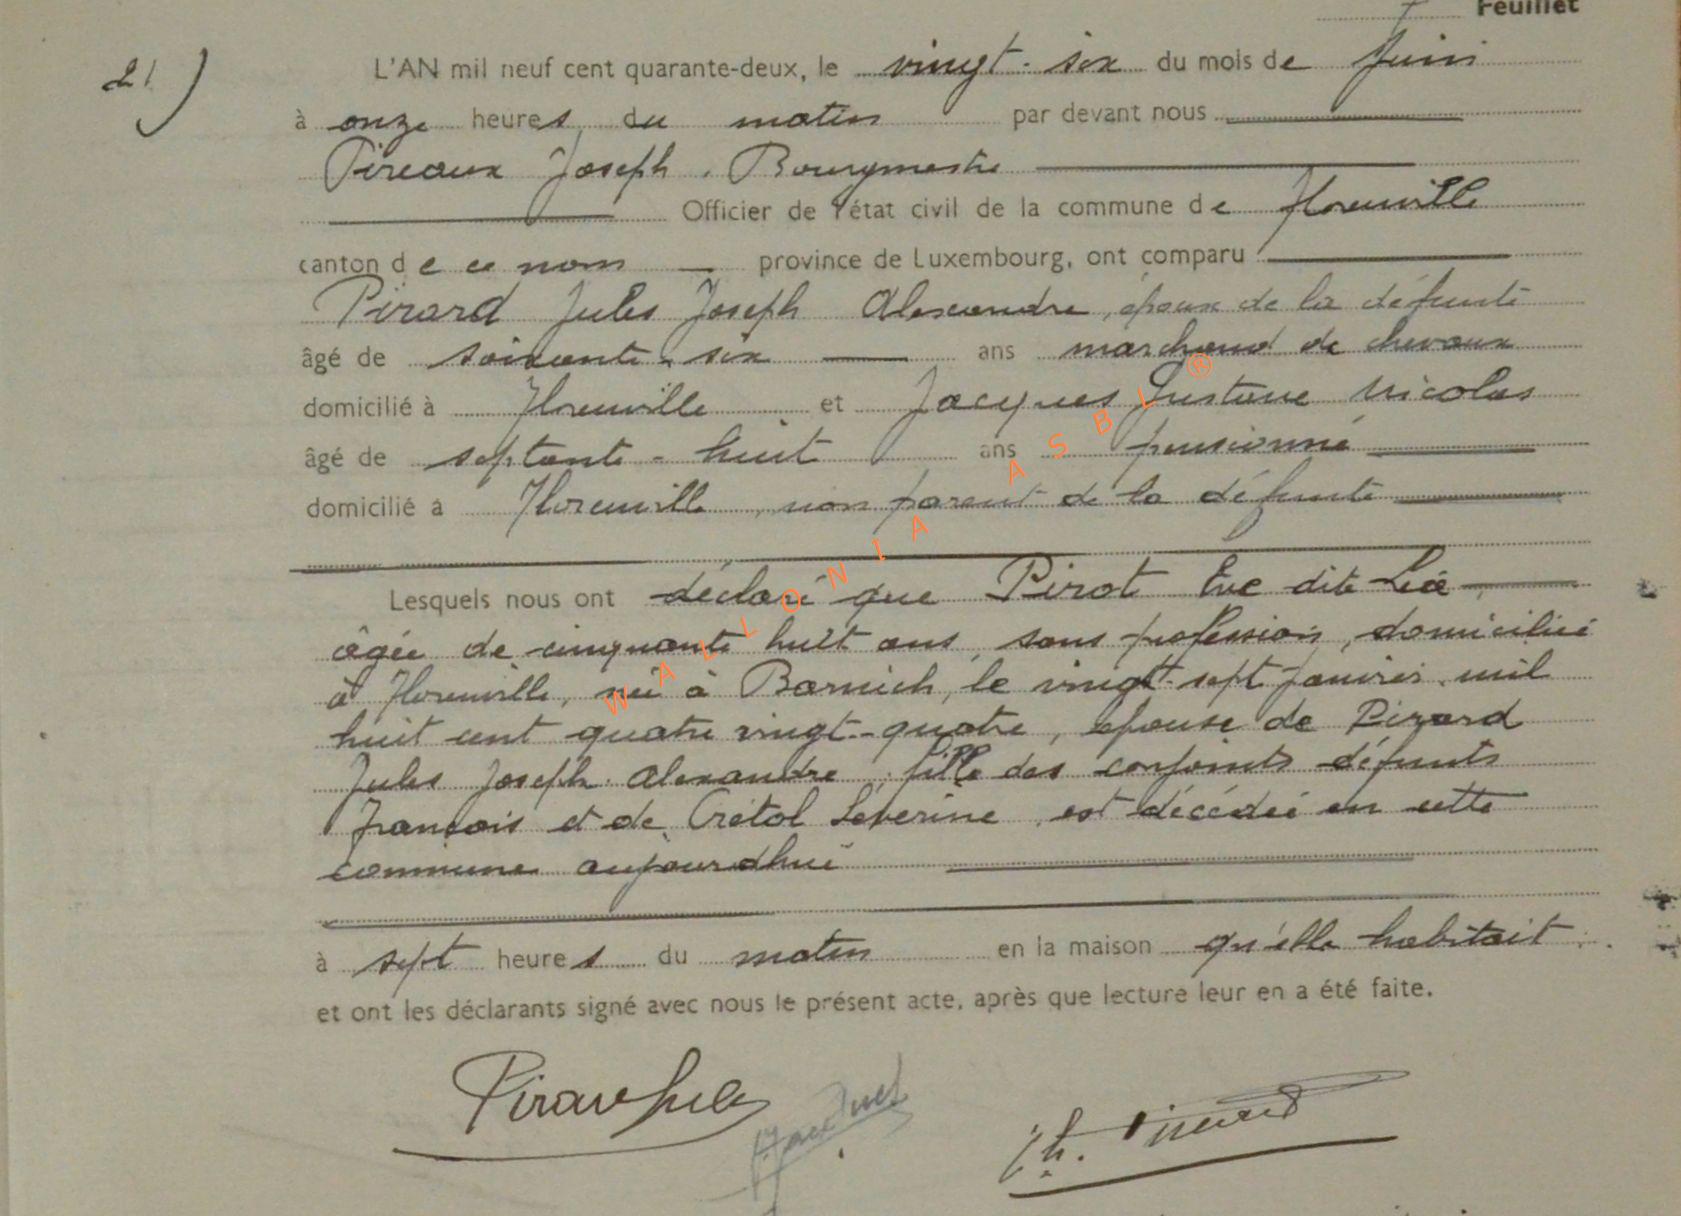 7 Feuillet
21)
L'AN mil neuf cent quarante-deux, le vingt-six du mois de Juin
à onze heures du matin par devant nous
Pireaux Joseph, Bourgmestre
Officier de l'état civil de la commune de Florenville
canton de ce nom province de Luxembourg, ont comparu
Pirard Jules Joseph Alexandre, époux de la défunte
âgé de soixante-six ans marchand de chevaux
domicilié à Florenville et Jacques Gustave Nicolas
âgé de septante-huit ans pensionné
domicilié à Florenville, non parent de la défunte
Lesquels nous ont déclaré que Pirot Eve dite Léa
âgée de cinquante huit ans, sans profession, domiciliée
à Florenville, née à Barnich, le vingt-sept Janvier mil
huit cent quatre vingt-quatre, épouse de Pirard
Jules Joseph Alexandre, fille des conjoints défunts
François et de Crétol Séverine, est décédée en cette
commune aujourdhui
à sept heures du matin en la maison qu'elle habitait
et ont les déclarants signé avec nous le présent acte, après que lecture leur en a été faite.
WALLONIA ASBL ®